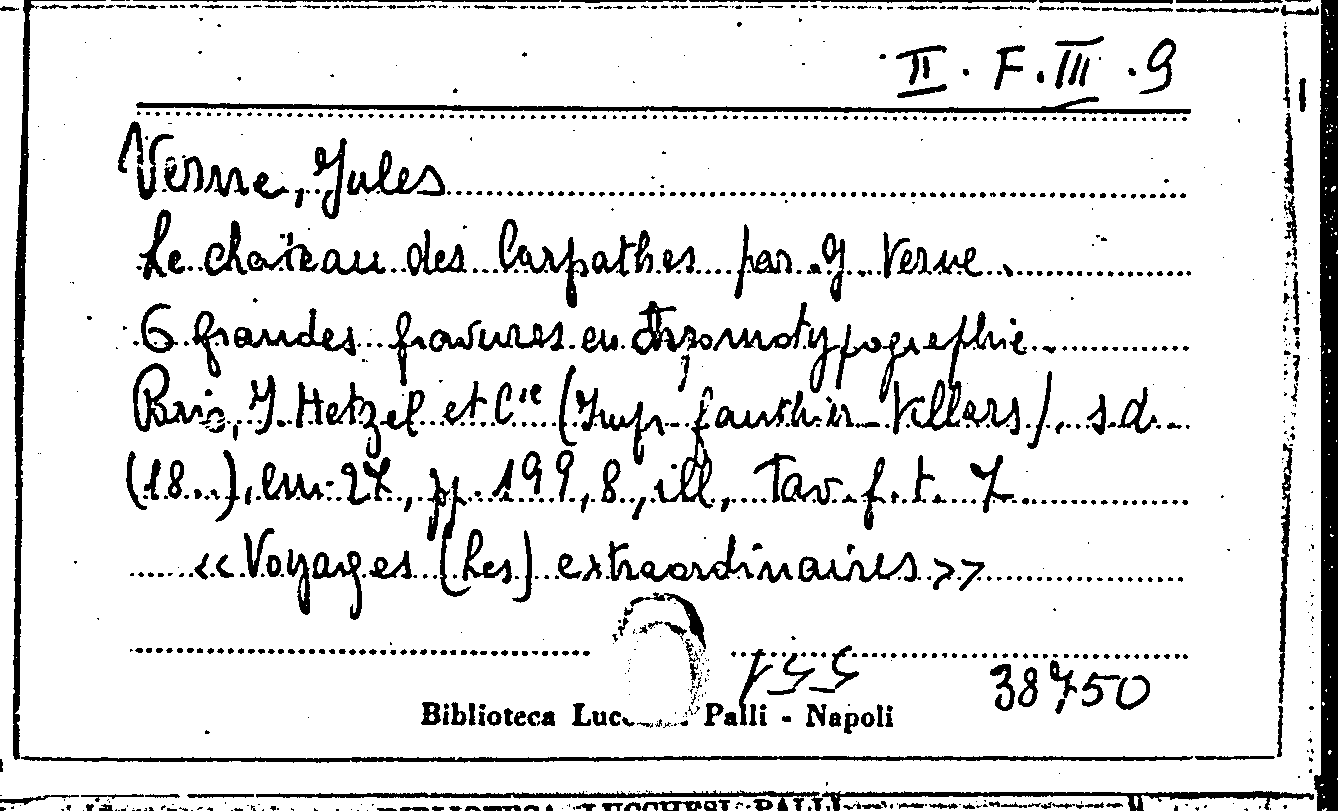 II. F. III. 9
Verne, Jules
Le chateau des Carpathes par J. Verne.
6 grandes gravures en chromotypographie.
Paris, J. Hetzel et C.ie (Imp. Gauthier-Villars), s.d.
(18..), cm. 27, pp. 199, 8, ill., Tav. f. t. 7
«Voyages (Les) extraordinaires»
38750
Biblioteca Palli - Napoli
BIBLIOTECA LUCCHESI-PALLI